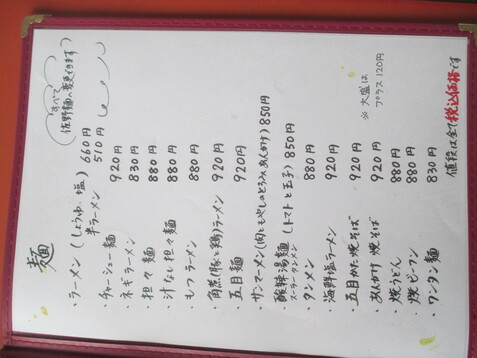 麺
すべて
佐野麺へ変更できます
・ラーメン(しょうゆ、塩) 660円
半ラーメン 510円
・チャーシュー麺 920円
・ネギラーメン 830円
・担々麺 880円
・汁なし担々麺 880円
・もつラーメン 880円
・角煮(豚と鶏)ラーメン 920円
・五目麺 920円
・サンマーメン(肉ともやしのとろみあんかけ) 850円
・酸辣湯麺(トマトと玉子) 850円
スーラータンメン
・タンメン 880円
・海鮮塩ラーメン 920円
・五目かた焼そば 920円
・あんかけ焼そば 920円
・焼うどん 880円
・焼ビーフン 880円
・ワンタン麺 830円
※大盛は
プラス120円
値段は全て税込価格です